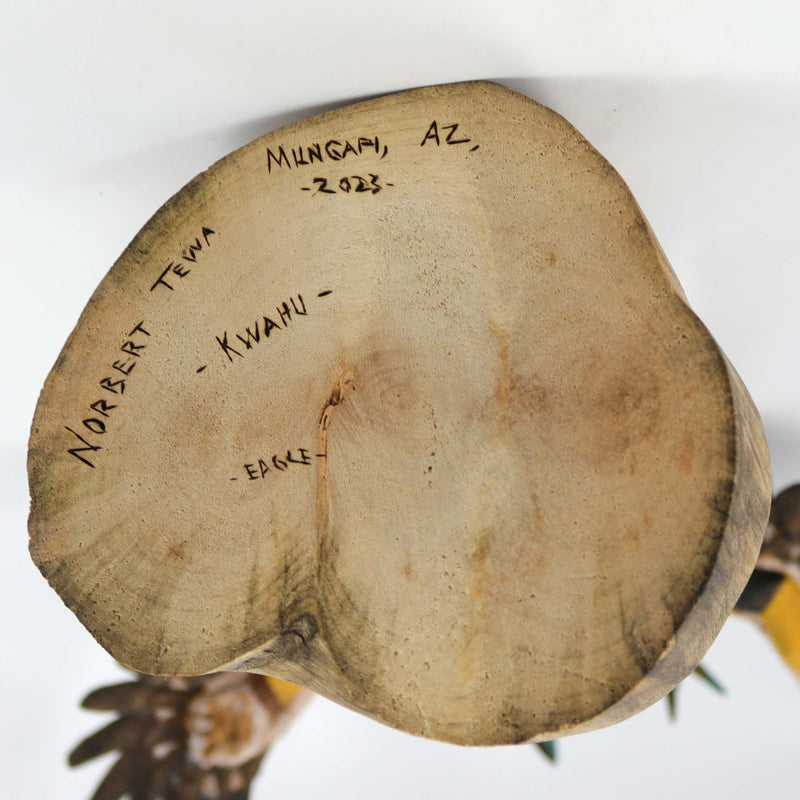 MUNQAPI, AZ,
-2023-
NORBERT TEWA
- KWAHU -
- EAGLE -